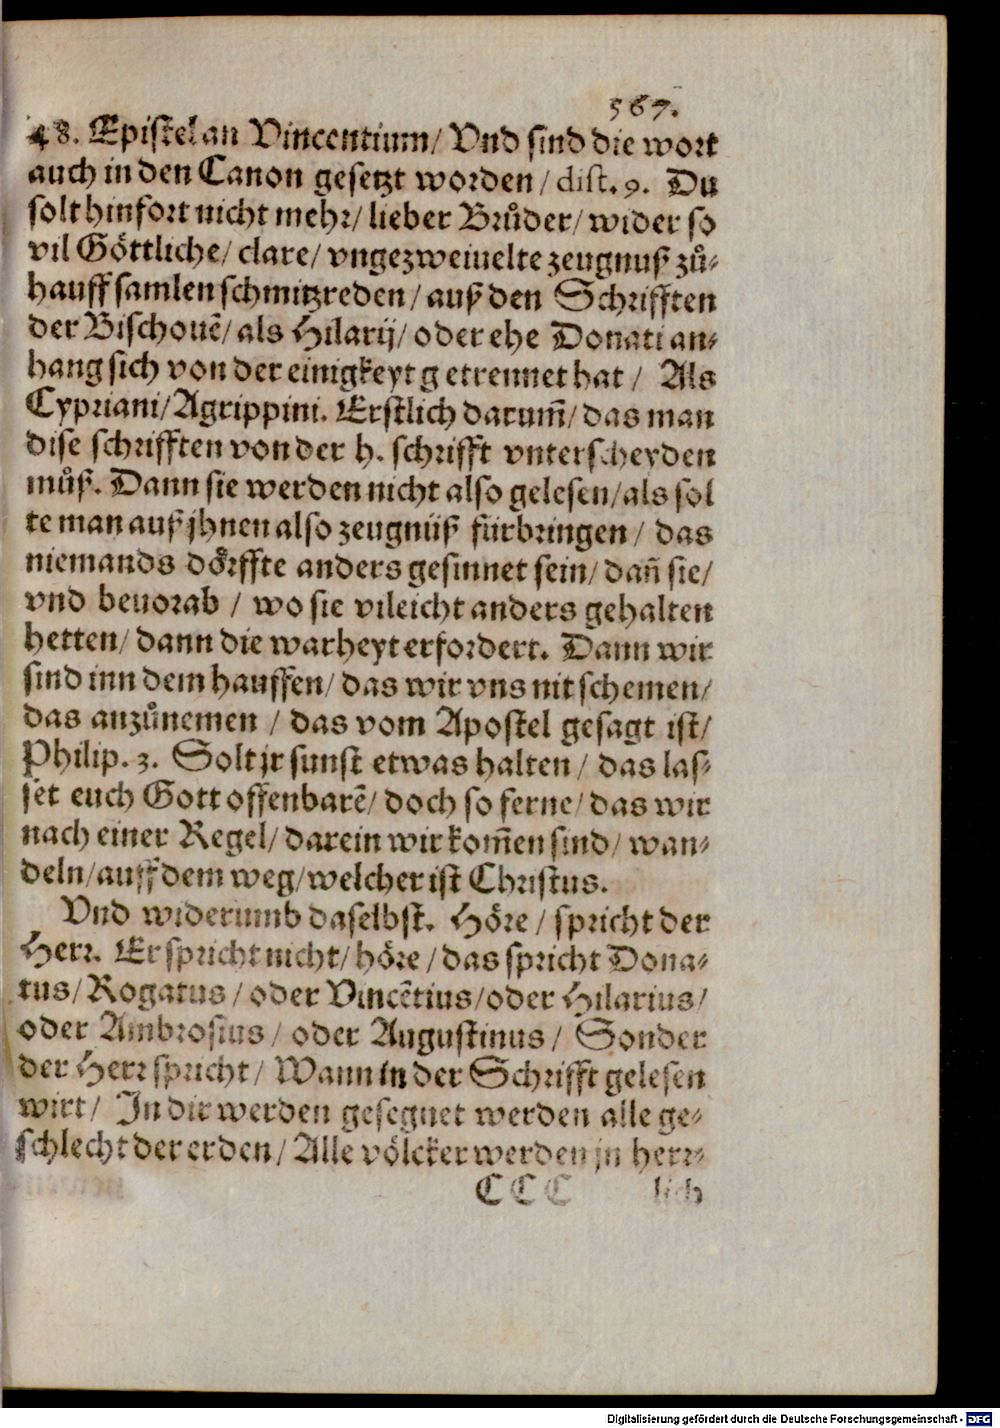 567.
48. Epistel an Vincentium/ Vnd sind die wort
auch in den Canon gesetzt worden/ dist. 9. Du
solt hinfort nicht mehr/ lieber Brůder/ wider so
vil Göttliche/ clare/ vngezweiuelte zeugnuß zů-
hauff samlen schmitzreden/ auß den Schrifften
der Bischouē/ als Hilarij/ oder ehe Donati an-
hang sich von der einigkeyt getrennet hat/ Als
Cypriani/ Agrippini. Erstlich darum̃/ das man
dise schrifften von der h. schrifft vnterscheyden
můß. Dann sie werden nicht also gelesen/ als sol
te man auß jhnen also zeugnüß fürbringen/ das
niemands dörffte anders gesinnet sein/ dan̄ sie/
vnd beuorab/ wo sie vileicht anders gehalten
hetten/ dann die warheyt erfordert. Dann wir
sind inn dem hauffen/ das wir vns nit schemen/
das anzůnemen/ das vom Apostel gesagt ist/
Philip. 3. Solt jr sunst etwas halten/ das las-
set euch Gott offenbarē/ doch so ferne/ das wir
nach einer Regel/ darein wir kom̃en sind/ wan-
deln/ auff dem weg/ welcher ist Christus.
Vnd widerumb daselbst. Höre/ spricht der
Herr. Er spricht nicht/ höre/ das spricht Dona-
tus/ Rogatus/ oder Vincētius/ oder Hilarius/
oder Ambrosius/ oder Augustinus/ Sonder
der Herr spricht/ Wann in der Schrifft gelesen
wirt/ In dir werden gesegnet werden alle ge-
schlecht der erden/ Alle völcker werden jn herr-
CCC lich
Digitalisierung gefördert durch die Deutsche Forschungsgemeinschaft - DFG